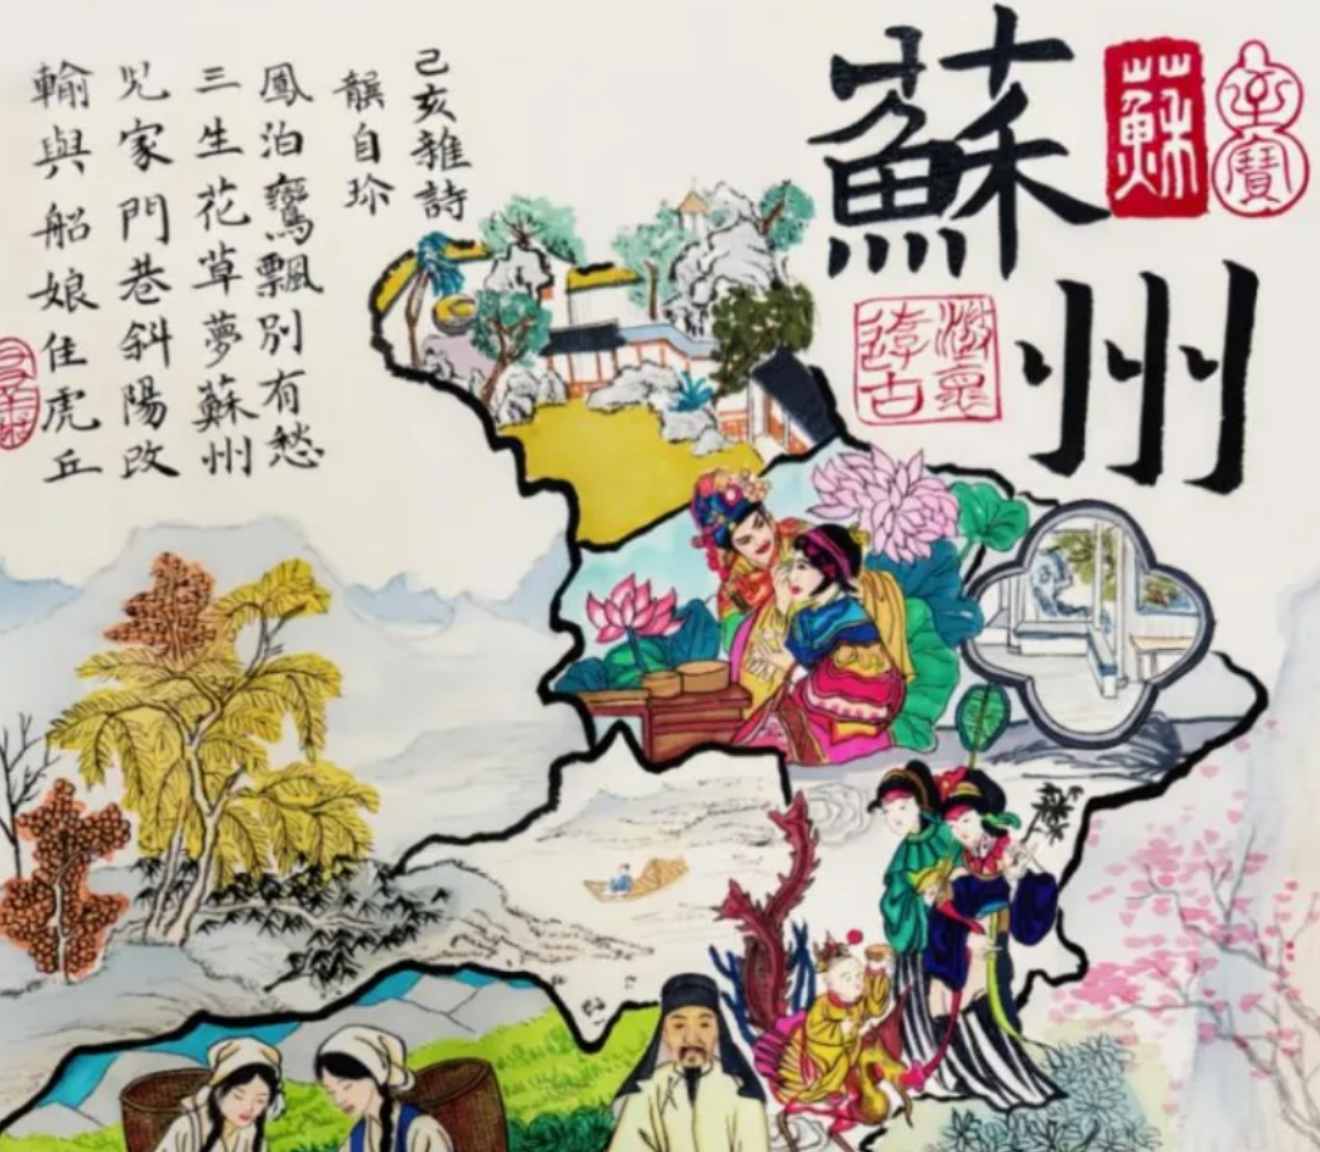 蘇州
蘇
己亥雜詩
龔自珍
鳳泊鸞飄別有愁
三生花草夢蘇州
兒家門巷斜陽改
輸與船娘佳虎丘